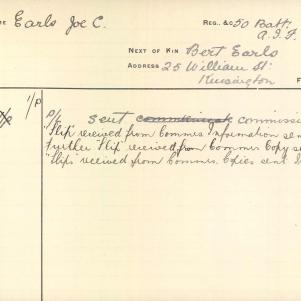 Earls Joe C.
REG., &C 50 Batt.
A.I.F.
NEXT OF KIN Bert Earls
ADDRESS 25 William St.
Kensington
1/P
P/C sent commissi
"Slip" received from Commrs Information sen
Further "Slip" received from Commrs Copy se
"Slips" received from Commrs. Copies sent